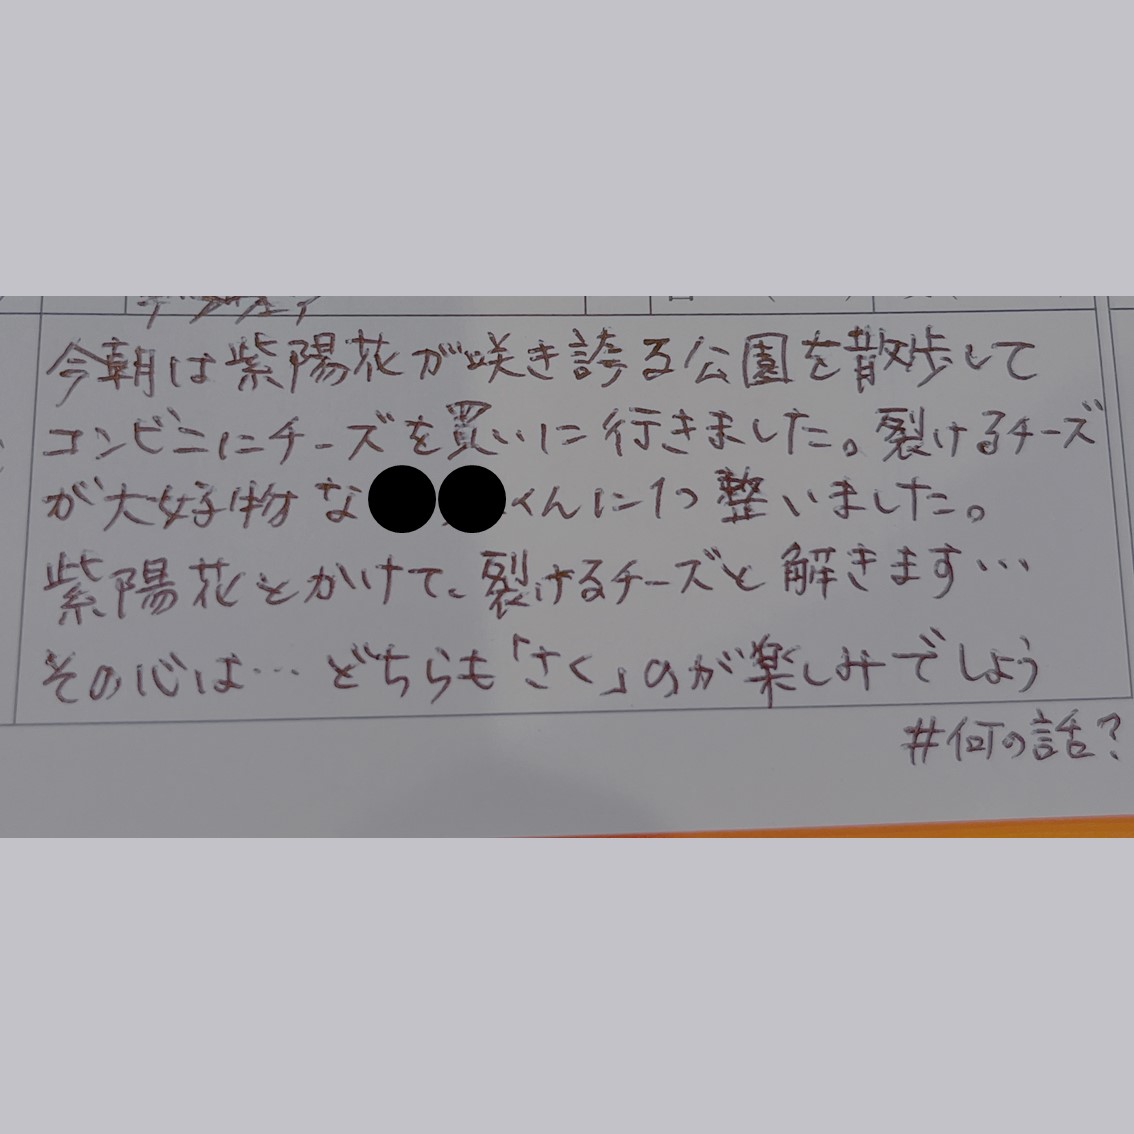 デザフェア
今朝は紫陽花が咲き誇る公園を散歩して
コンビニにチーズを買いに行きました。裂けるチーズ
が大好物な くんに1つ整いました。
紫陽花とかけて、裂けるチーズと解きます…
その心は… どちらも「さく」のが楽しみでしょう
#何の話?